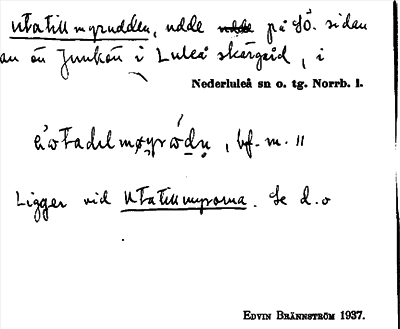 Utatillmyrudden, udde på SÖ. sidan
av ön Junkön i Luleå skärgård, i
Nederluleå sn o. tg. Norrb. l.
, bf. m. "
Ligger vid Utatillmyrorna. Se d. o
Edvin Brännström 1937.